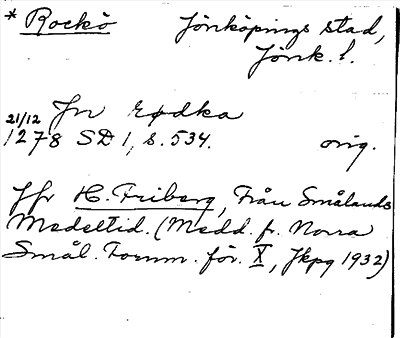 * Rockö Jönköpings stad,
Jönk. l.
21/12 Jn rødka
1278 SD 1, s. 534. orig.
Jfr H. Friberg, Från Smålands
Medeltid. (Medd. fr. Norra
Smål. Fornm. för. X, Jkpg 1932)